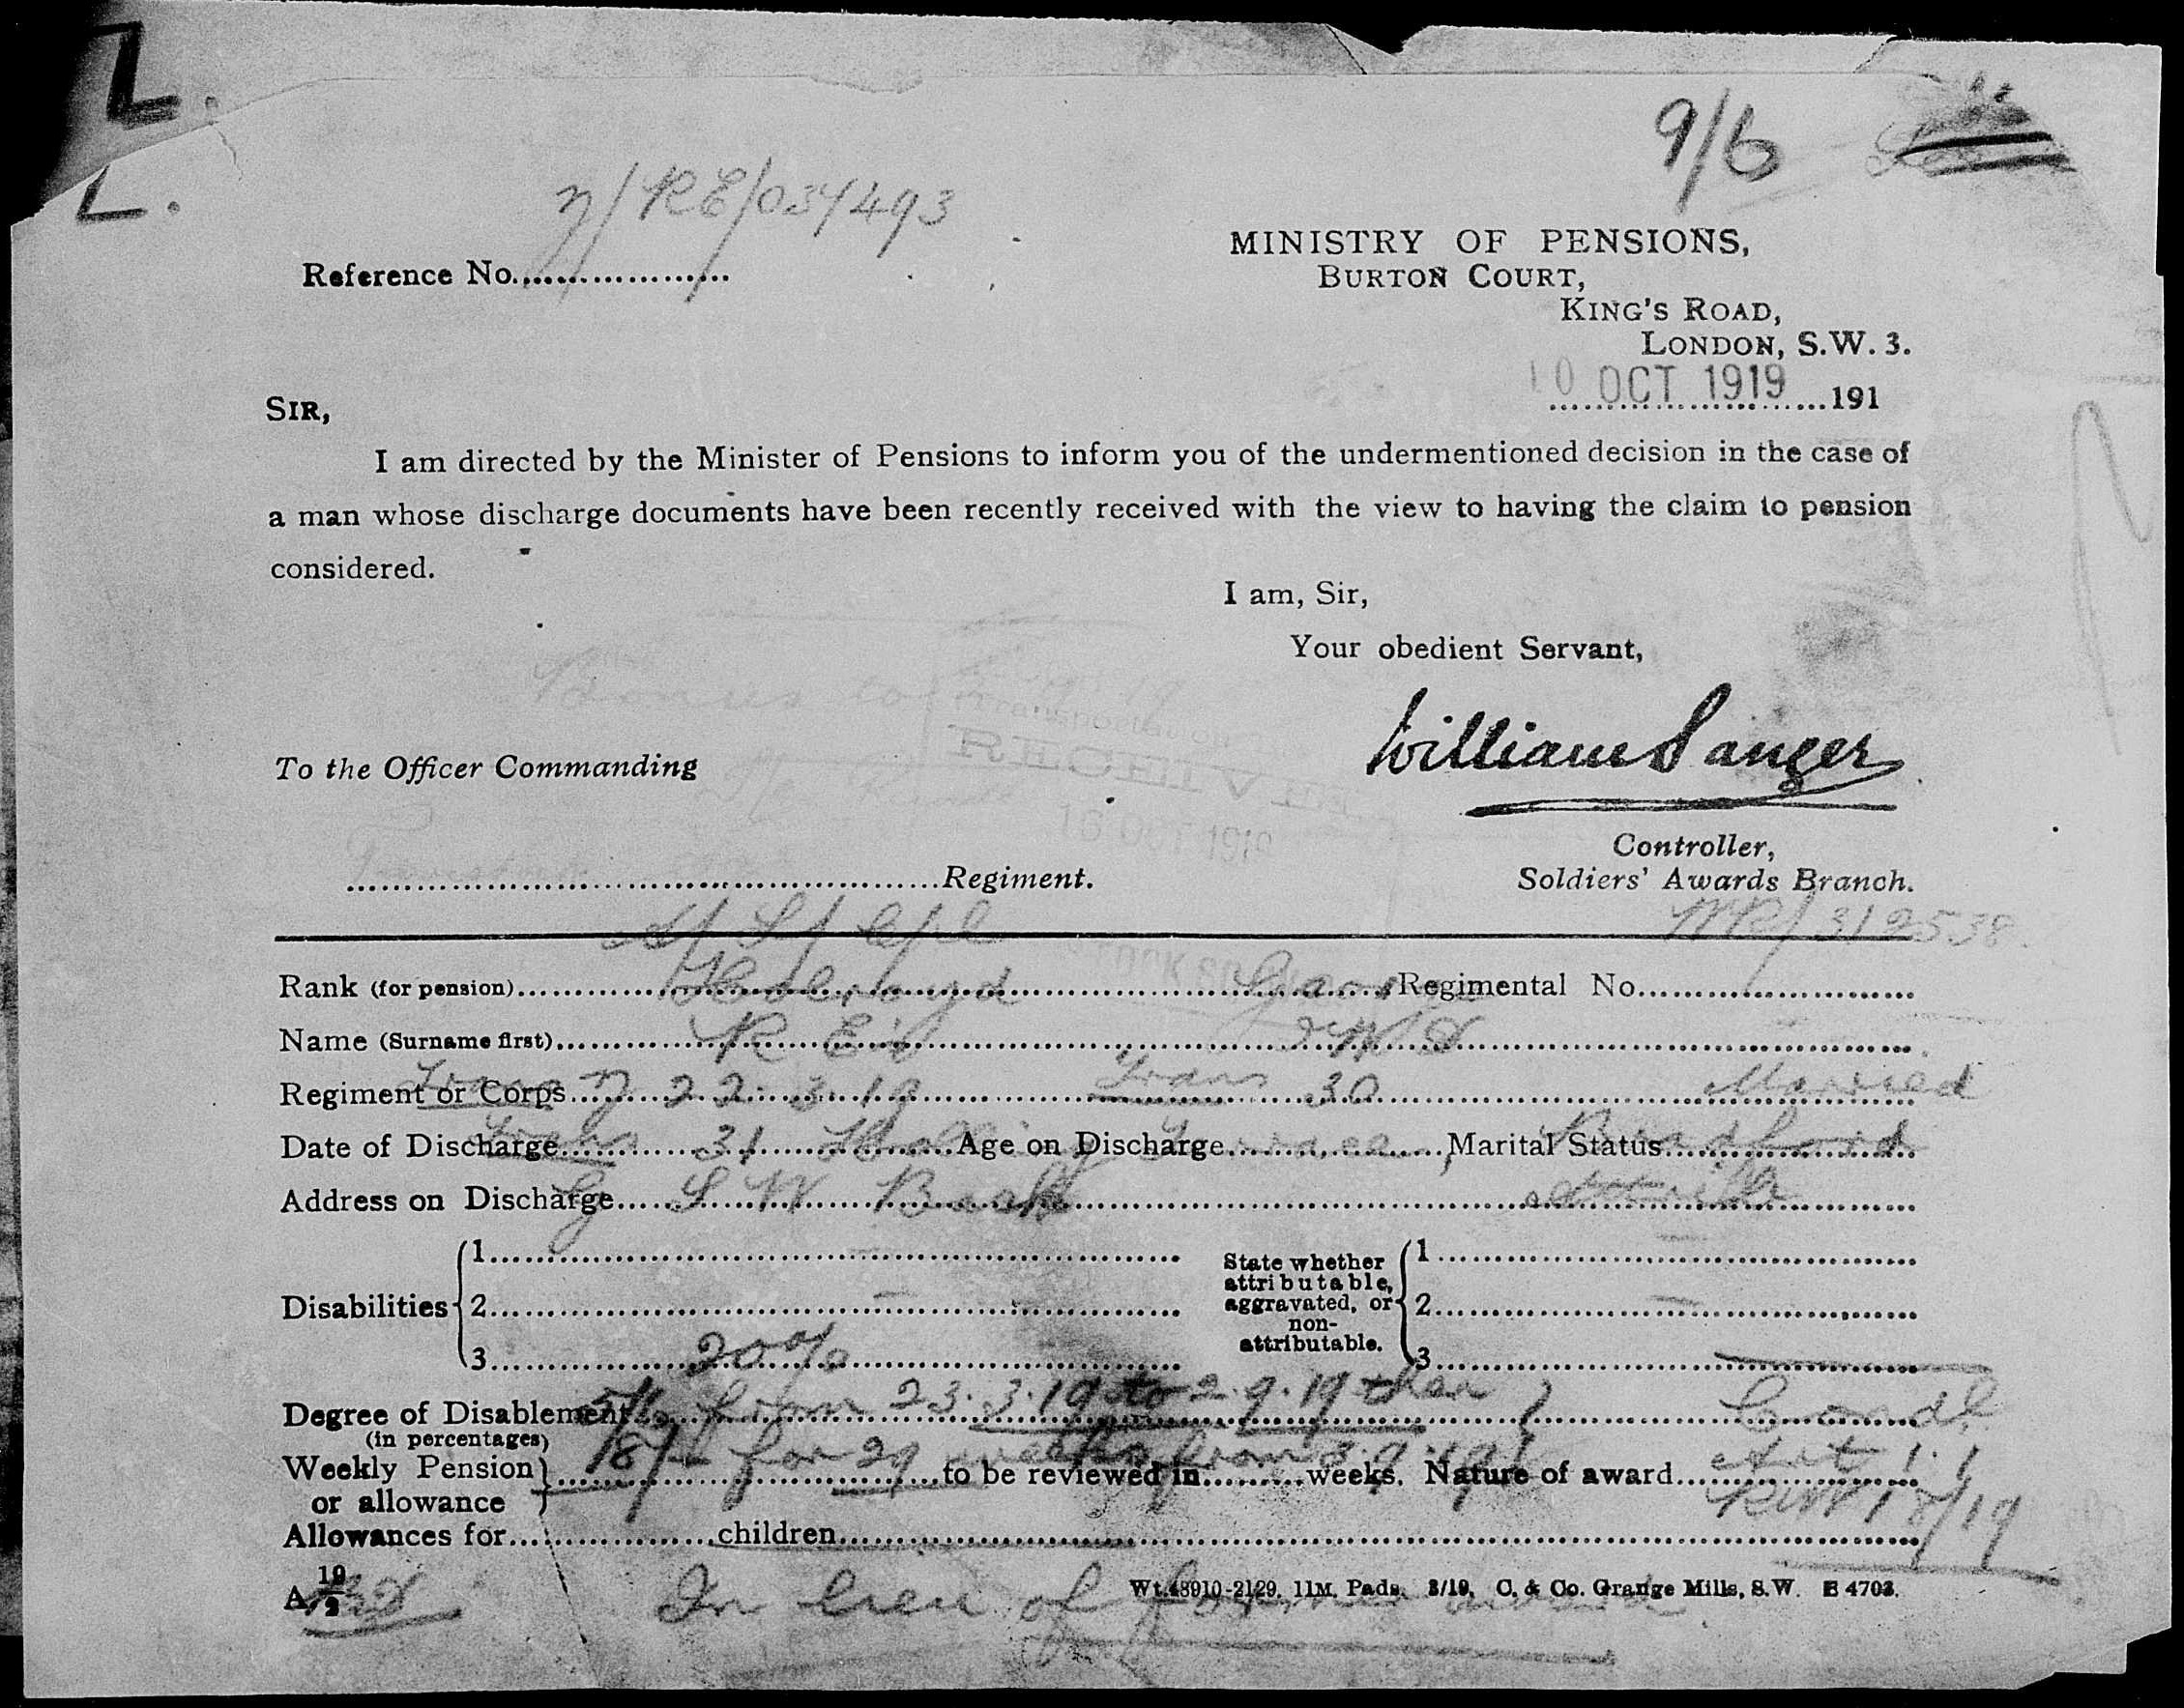 L.
L.
9/6
Reference No....................
MINISTRY OF PENSIONS,
BURTON COURT,
KING'S ROAD,
LONDON, S.W. 3.
10 OCT 1919 ........191
SIR,
I am directed by the Minister of Pensions to inform you of the undermentioned decision in the case of
a man whose discharge documents have been recently received with the view to having the claim to pension
considered.
I am, Sir,
Your obedient Servant,
William Sanger
To the Officer Commanding
RECEIVED
OCT 1919
Controller,
Soldiers' Awards Branch.
....................Regiment.
WR/312538
Rank (for pension)....................Regimental No....................
Name (Surname first)....................
R E
22.3.19
30
Married
Regiment or Corps....................
31
Bradford
Date of Discharge....................Age on Discharge....................Marital Status....................
G S W
Address on Discharge....................
Disabilities
1....................
2....................
3....................
State whether attributable, aggravated, or non-attributable.
1....................
2....................
3....................
20%
5/6 from 23.3.19 to 2.9.19 then
Condl
Degree of Disablement....................
(in percentages)
8/- for 29 weeks from 3.9.19
Art 1.1
Weekly Pension or allowance....................to be reviewed in..........weeks. Nature of award....................
Allowances for....................children....................
In lieu of former award
Wt.48910-2129. 11M. Pads. 3/19. C. & Co. Grange Mills, S.W. E 4703.